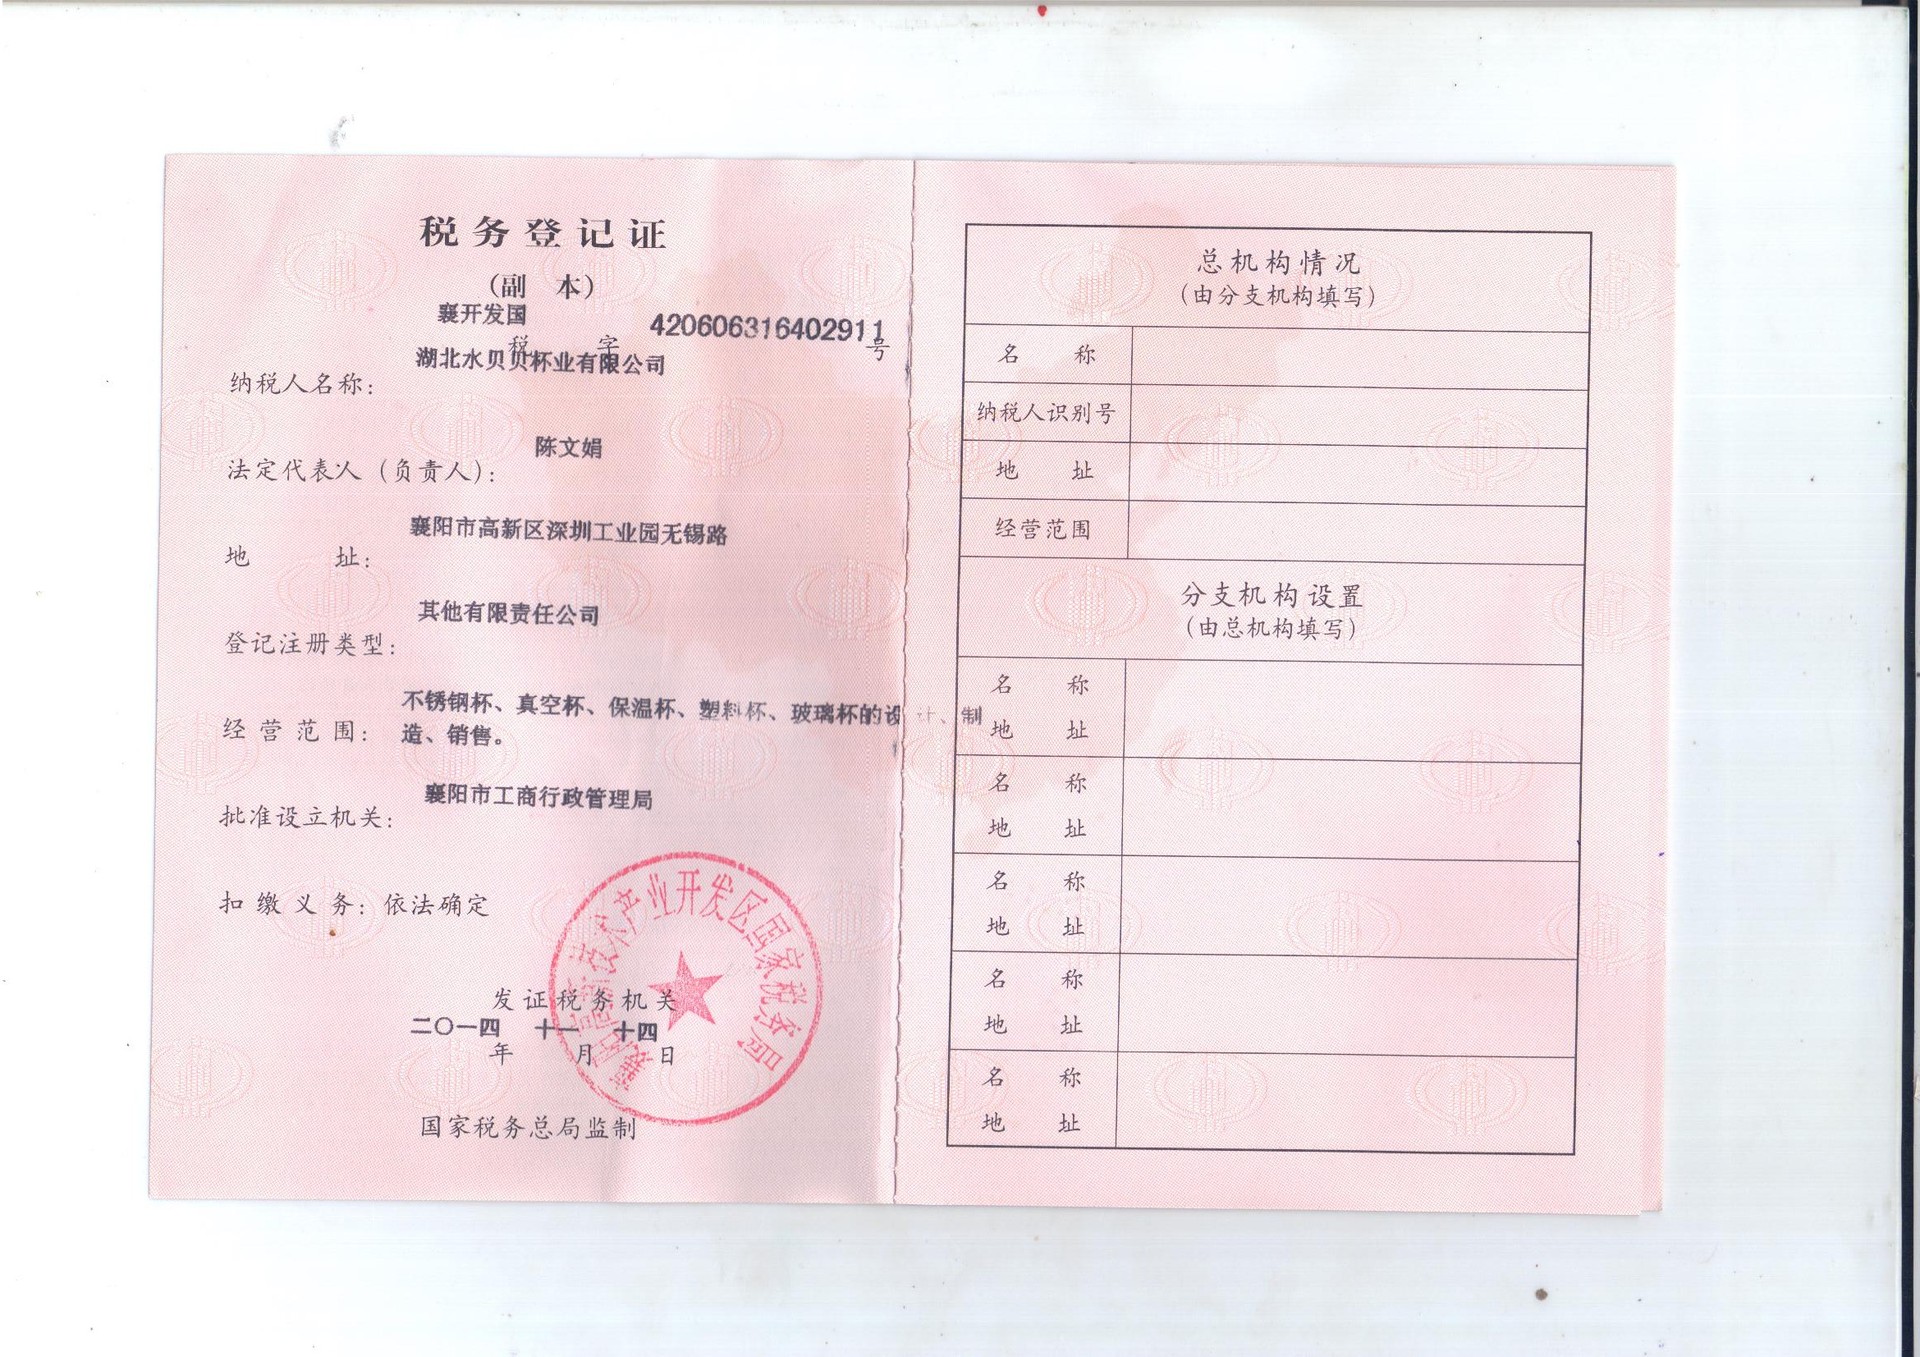 税务登记证
（副 本）
襄开发国
税 字 420606316402911 号
湖北水贝贝杯业有限公司
纳税人名称：
陈文娟
法定代表人（负责人）：
襄阳市高新区深圳工业园无锡路
地 址：
其他有限责任公司
登记注册类型：
不锈钢杯、真空杯、保温杯、塑料杯、玻璃杯的设计、制
经营范围：造、销售。
襄阳市工商行政管理局
批准设立机关：
扣缴义务：依法确定
襄阳高新技术产业开发区国家税务局
发证税务机关
二〇一四 十一 十四
年 月 日
国家税务总局监制
总机构情况
（由分支机构填写）
名 称
纳税人识别号
地 址
经营范围
分支机构设置
（由总机构填写）
名 称
地 址
名 称
地 址
名 称
地 址
名 称
地 址
名 称
地 址